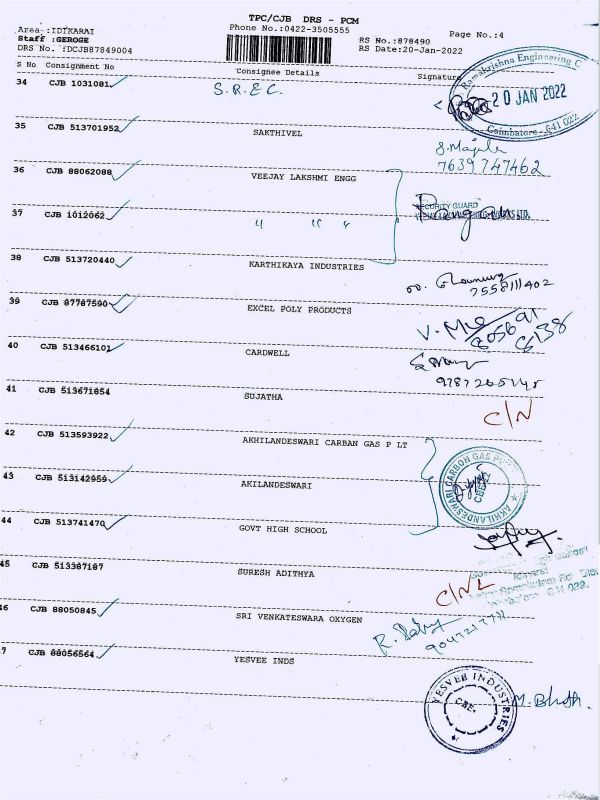 TPC/CJB DRS - PCM
Area :IDIKARAI
Phone No.:0422-3505555
Page No.:4
Staff :GEROGE
RS No.:878490
DRS No. :DCJB87849004
RS Date:20-Jan-2022
S No Consignment No Consignee Details Signature
34 CJB 1031081 S.R.E.C.
Ramakrishna Engineering C
20 JAN 2022
Coimbatore - 641 022
35 CJB 513701952 SAKTHIVEL
7639747462
36 CJB 88062088 VEEJAY LAKSHMI ENGG
SECURITY GUARD
37 CJB 1012062 " " "
38 CJB 513720440 KARTHIKAYA INDUSTRIES
7558111402
39 CJB 87787590 EXCEL POLY PRODUCTS
40 CJB 513466101 CARDWELL
41 CJB 513671654 SUJATHA
C/N
42 CJB 513593922 AKHILANDESWARI CARBAN GAS P LT
43 CJB 513142959 AKILANDESWARI
AKHILANDESWARI CARBON GAS
CBE
44 CJB 513741470 GOVT HIGH SCHOOL
45 CJB 513387187 SURESH ADITHYA
C/NL
46 CJB 88050845 SRI VENKATESWARA OXYGEN
R.
7 CJB 88056564 YESVEE INDS
YESVEE INDUSTRIES
CBE.
M.